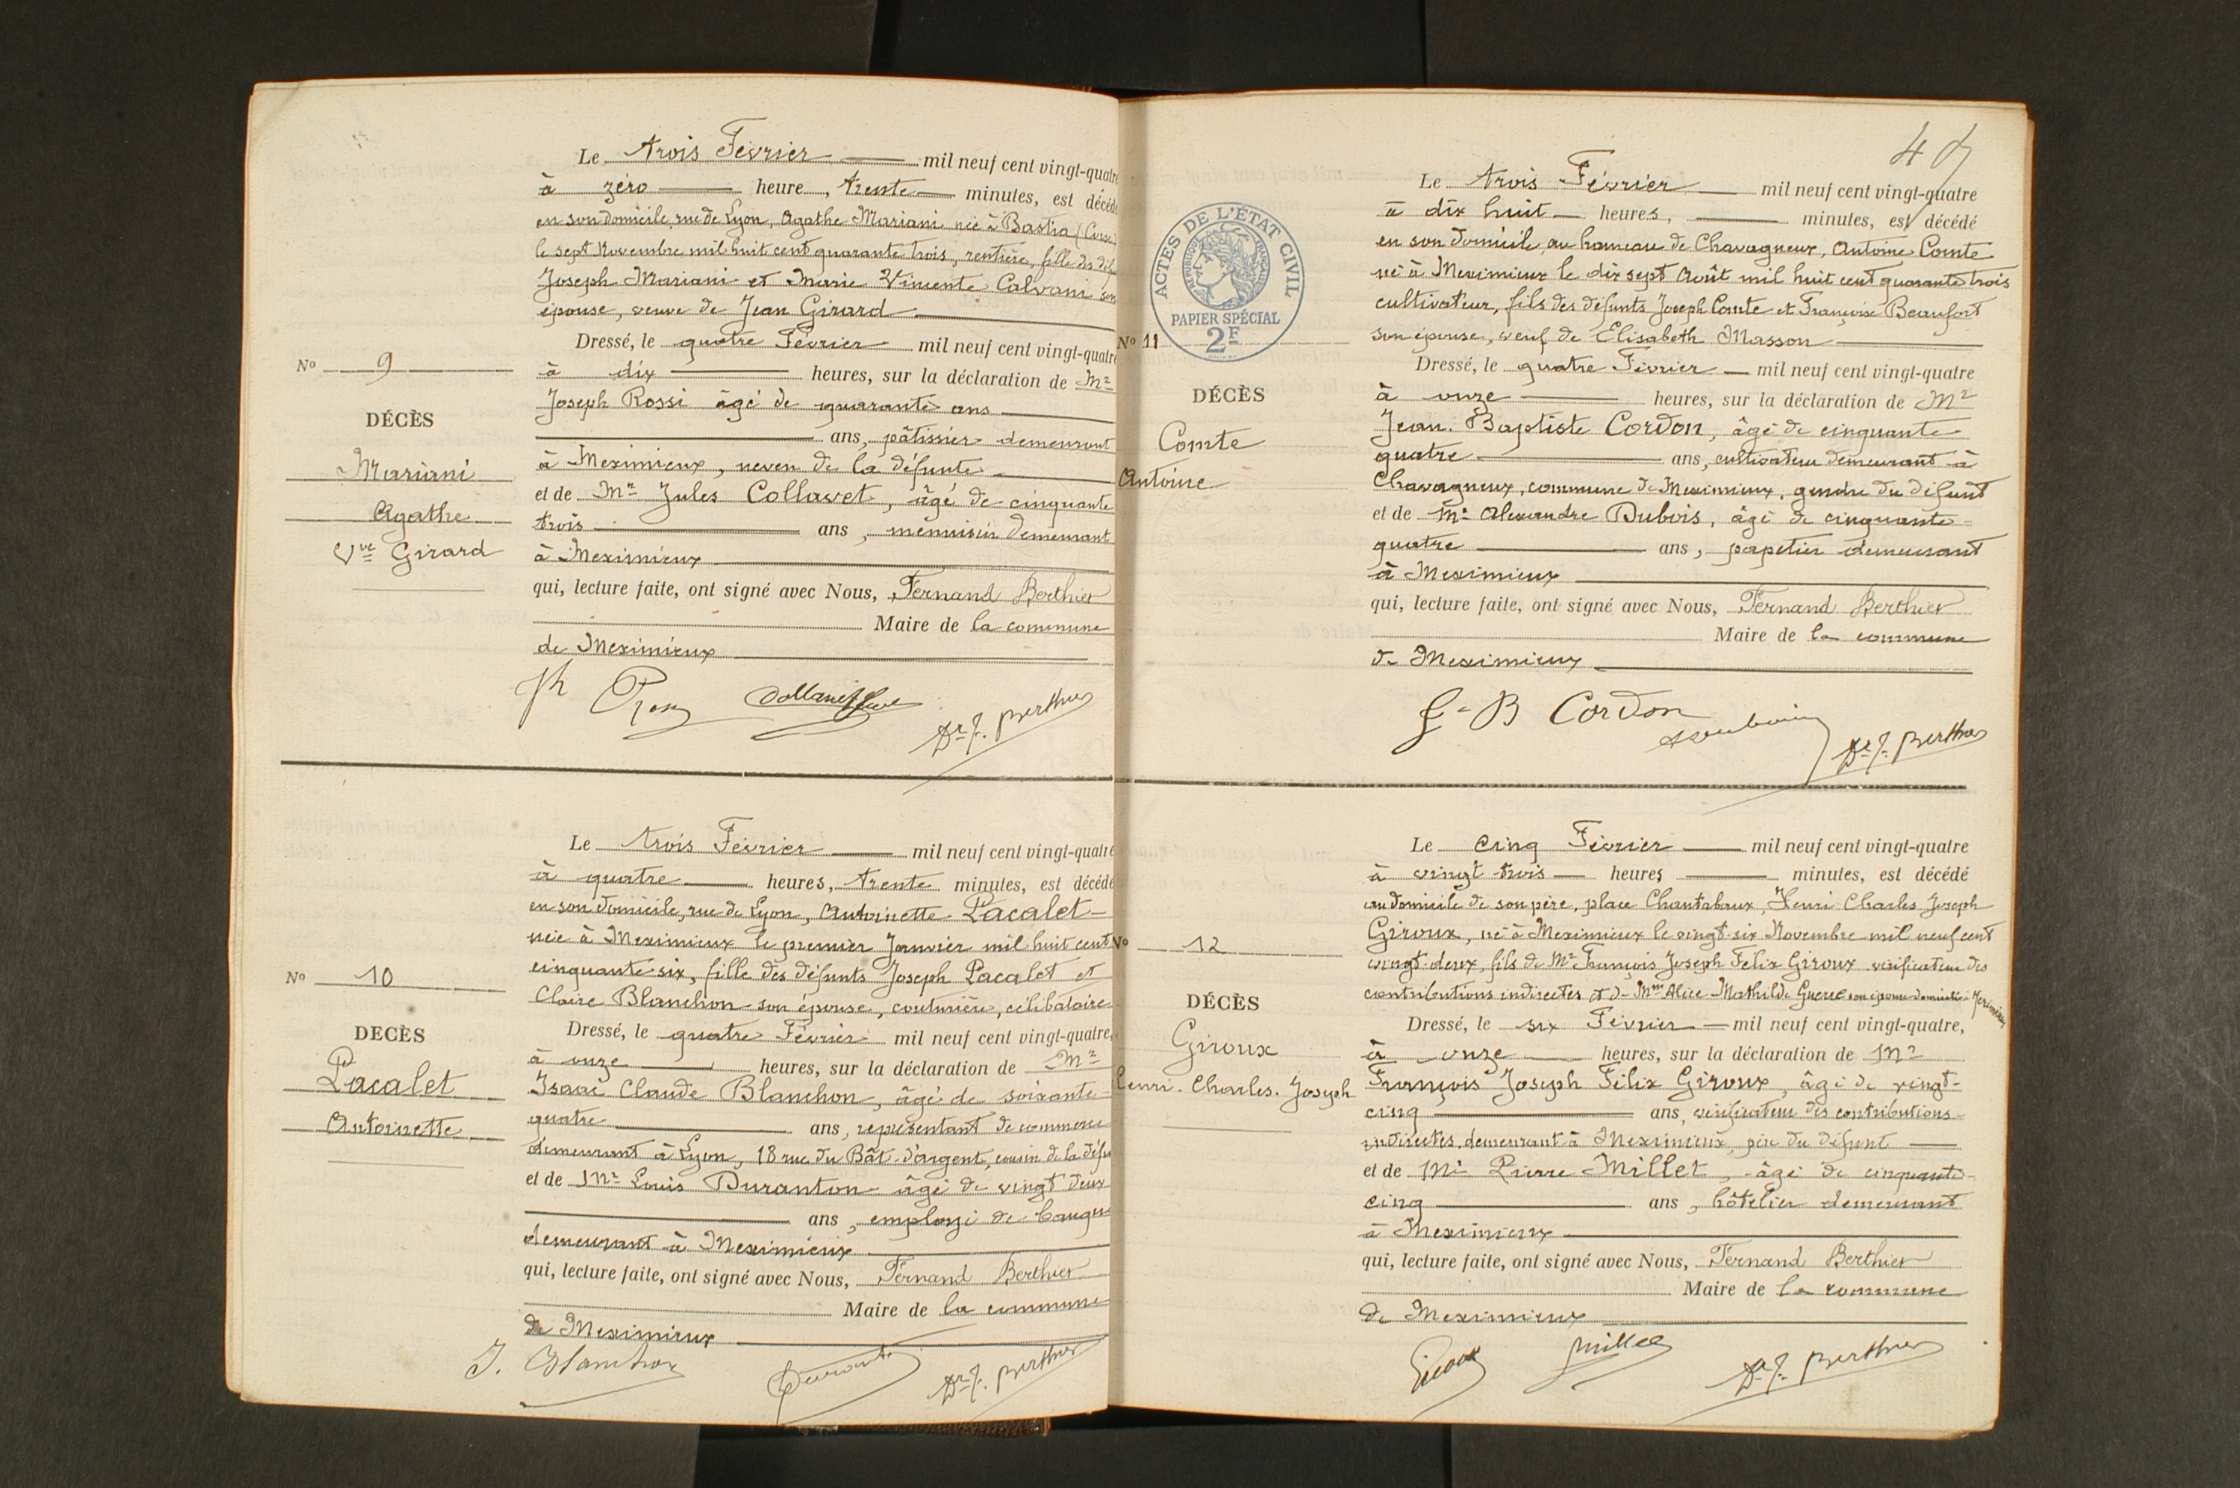 Le trois Février mil neuf cent vingt-quatre
à zéro heure, trente minutes, est décédé
en son domicile, rue de Lyon, Agathe Mariani née à Bastia (Corse)
le sept Novembre mil huit cent quarante trois, rentière, fille des déf
Joseph Mariani et Marie Vincente Calvani son
épouse, veuve de Jean Girard
Dressé, le quatre Février mil neuf cent vingt-quatre
à dix heures, sur la déclaration de Mr
Joseph Rossi âgé de quarante ans
ans, pâtissier demeurant
à Meximieux, neveu de la défunte
et de Mr Jules Collavet, âgé de cinquante
trois ans, menuisier demeurant
à Meximieux
qui, lecture faite, ont signé avec Nous, Fernand Berthier
Maire de la commune
de Meximieux
No 9
DÉCÈS
Mariani
Agathe
Vve Girard
Jh Rossi Dr F. Berthier
Le trois Février mil neuf cent vingt-quatre
à quatre heures, trente minutes, est décédé
en son domicile, rue de Lyon, Antoinette Pacalet
née à Meximieux le premier Janvier mil huit cent
cinquante six, fille des défunts Joseph Pacalet et
Claire Blanchon son épouse, couturière, célibataire
Dressé, le quatre Février mil neuf cent vingt-quatre,
à onze heures, sur la déclaration de Mr
Isaac Claude Blanchon, âgé de soixante-
quatre ans, représentant de commerce
demeurant à Lyon, 18 rue du Bât d'argent, cousin de la défu
et de Mr Louis Duranton âgé de vingt deux
ans, employé de banque
demeurant à Meximieux
qui, lecture faite, ont signé avec Nous, Fernand Berthier
Maire de la commune
de Meximieux
No 10
DÉCÈS
Pacalet
Antoinette
I. Blanchon Duranton Dr F. Berthier
ACTES DE L'ÉTAT CIVIL
RÉPUBLIQUE FRANÇAISE
PAPIER SPÉCIAL
2F
Le trois Février mil neuf cent vingt-quatre
à dix huit heures, minutes, est décédé
en son domicile au hameau de Chavagneux, Antoine Comte
né à Meximieux le dix sept Août mil huit cent quarante trois
cultivateur, fils des défunts Joseph Comte et Françoise Beaufort
son épouse, veuf de Elisabeth Masson
Dressé, le quatre Février mil neuf cent vingt-quatre
à onze heures, sur la déclaration de Mr
Jean-Baptiste Cordon, âgé de cinquante
quatre ans, cultivateur demeurant à
Chavagneux, commune de Meximieux, gendre du défunt
et de Mr Alexandre Dubois, âgé de cinquante-
quatre ans, papetier demeurant
à Meximieux
qui, lecture faite, ont signé avec Nous, Fernand Berthier
Maire de la commune
de Meximieux
No 11
DÉCÈS
Comte
Antoine
J-B Cordon Dr F. Berthier
Le cinq Février mil neuf cent vingt-quatre
à vingt trois heures minutes, est décédé
au domicile de son père, place Chantabaux, Henri Charles Joseph
Giroux, né à Meximieux le vingt-six Novembre mil neuf cent
vingt-deux, fils de Mr François Joseph Félix Giroux vérificateur des
contributions indirectes et de Mme Alice Mathilde son épouse domiciliés à Meximieux
Dressé, le six Février mil neuf cent vingt-quatre,
à onze heures, sur la déclaration de Mr
François Joseph Félix Giroux, âgé de vingt-
cinq ans, vérificateur des contributions
indirectes, demeurant à Meximieux, père du défunt
et de Mr Pierre Millet, âgé de cinquante-
cinq ans, hôtelier demeurant
à Meximieux
qui, lecture faite, ont signé avec Nous, Fernand Berthier
Maire de la commune
de Meximieux
No 12
DÉCÈS
Giroux
Henri. Charles. Joseph
Giroux Millet Dr F. Berthier